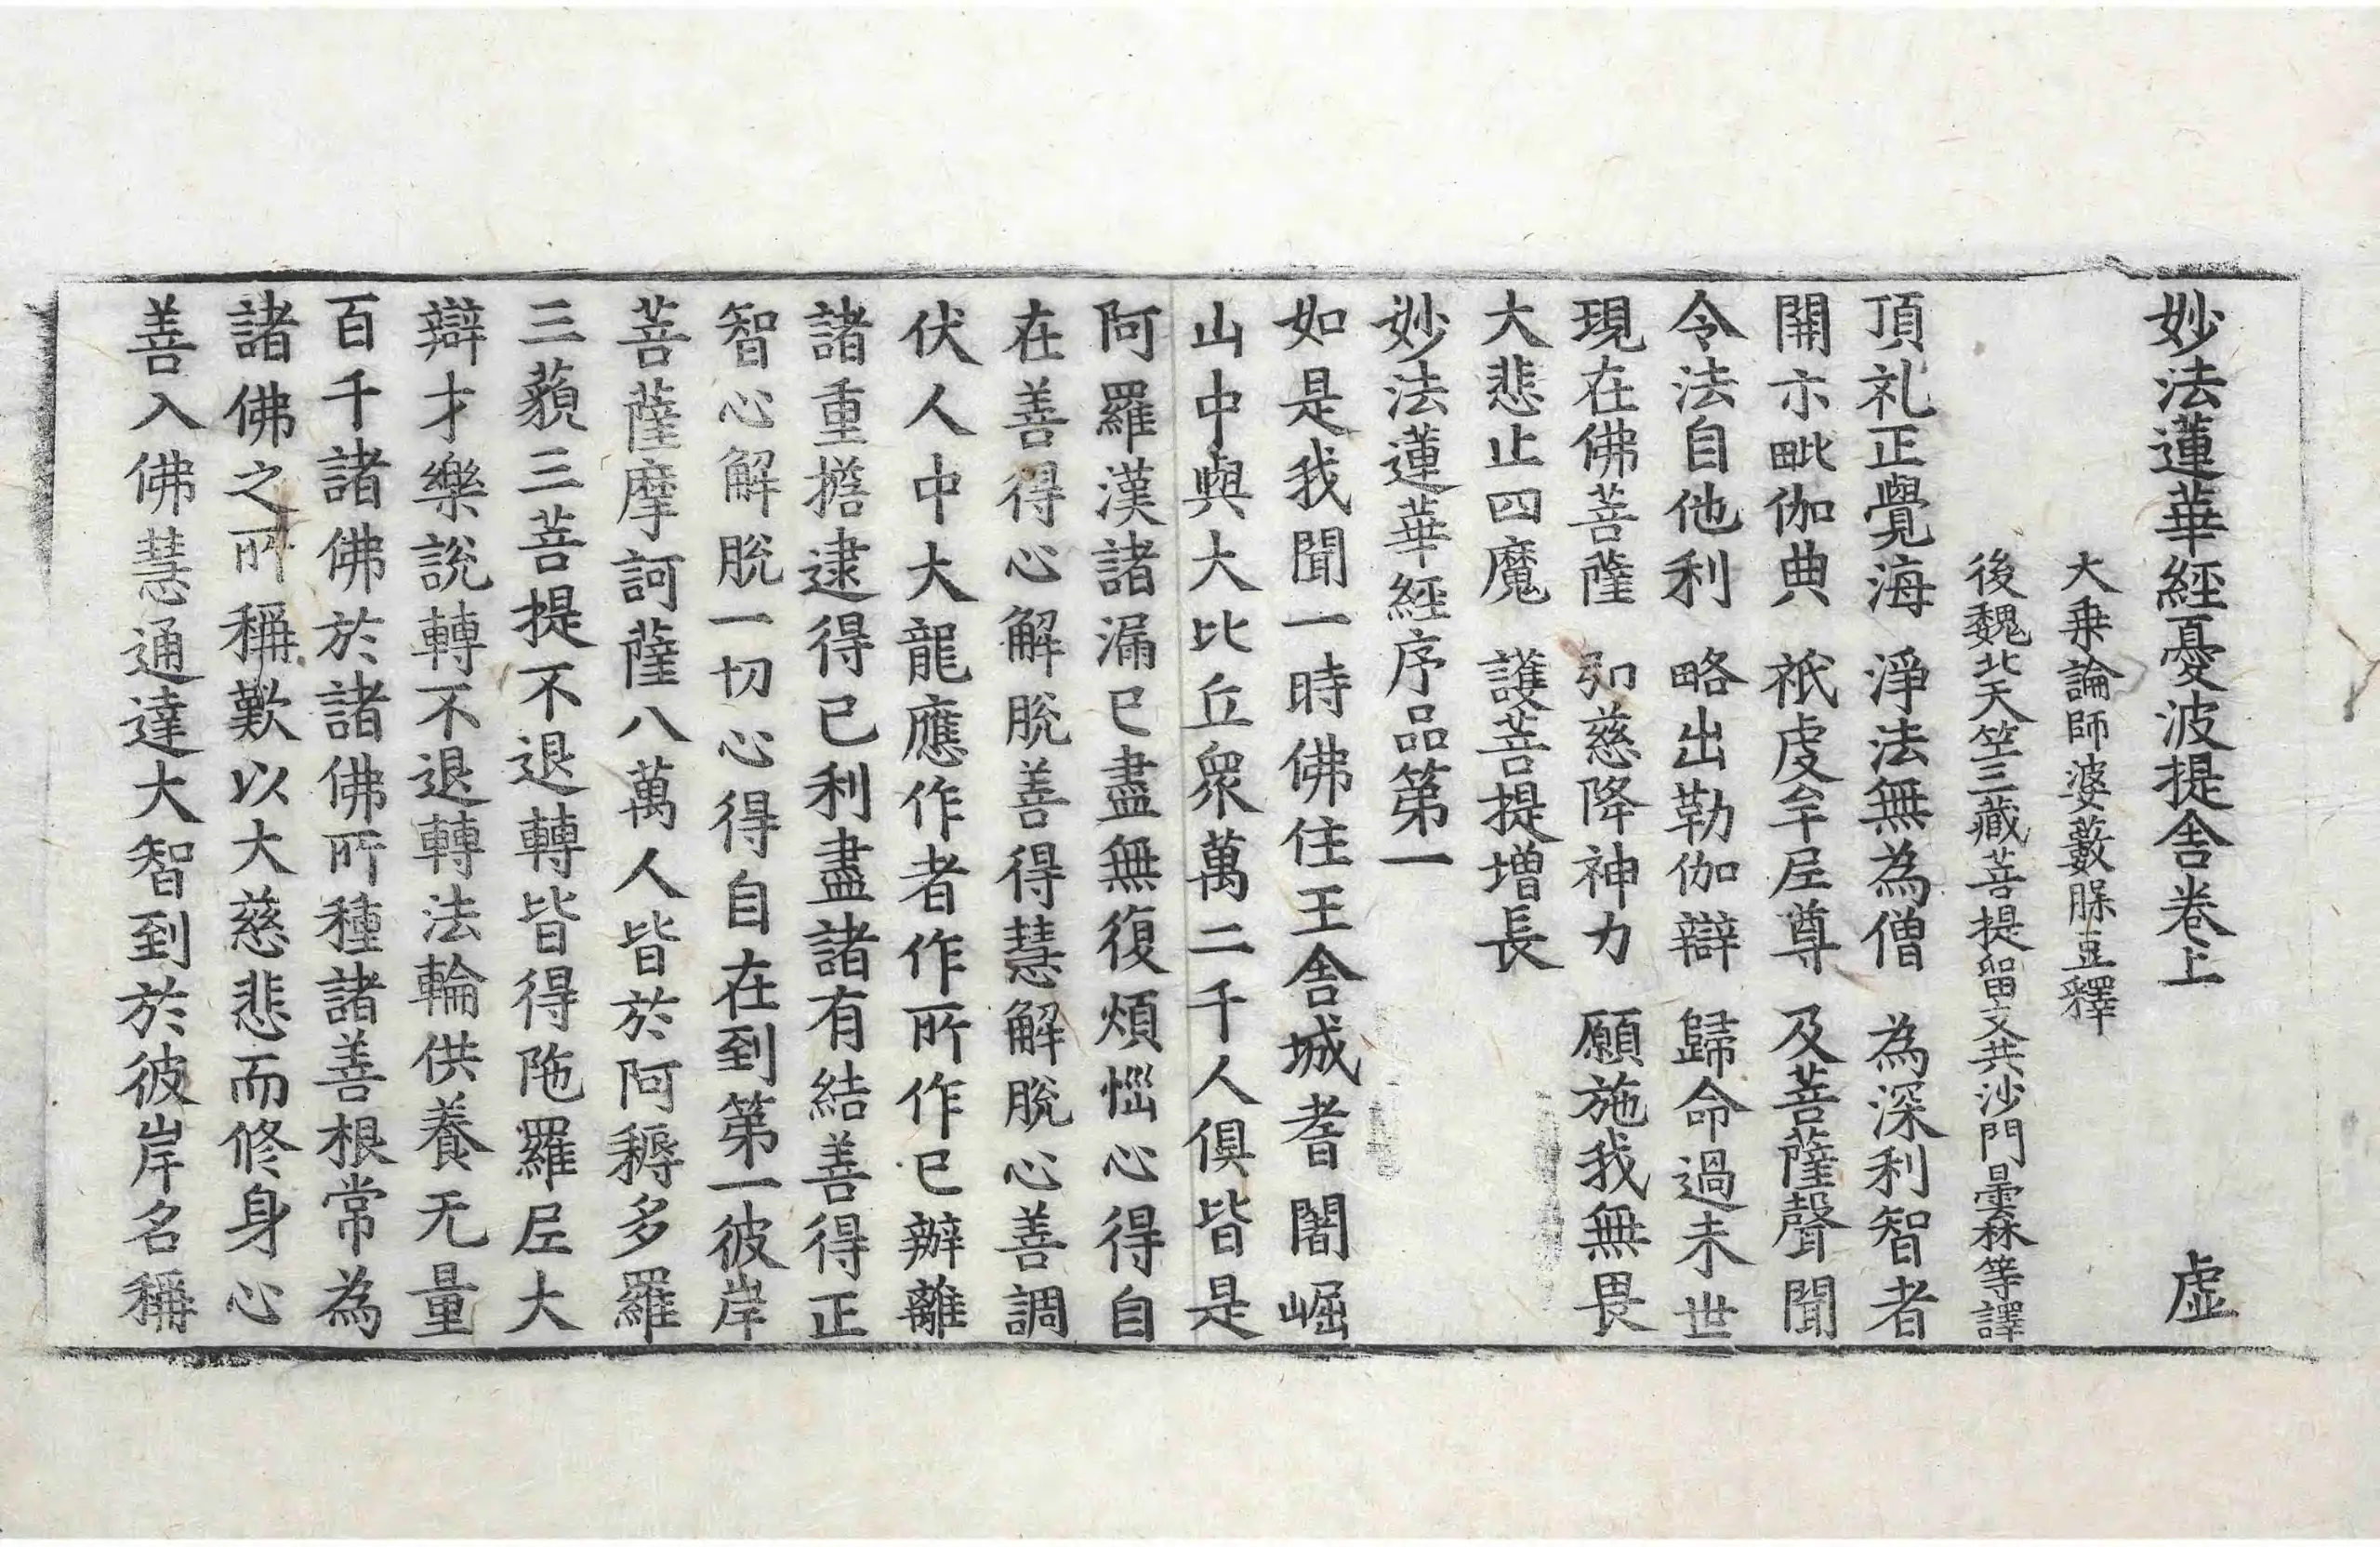 妙法蓮華經憂波提舍卷上 虛
大乗論師婆藪槃豆釋
後魏北天竺三藏菩提留支共沙門曇林等譯
頂礼正覺海 淨法無為僧 為深利智者
開示毗伽典 祇虔牟尼尊 及菩薩聲聞
令法自他利 略出勒伽辯 歸命過未世
現在佛菩薩 弘慈降神力 願施我無畏
大悲止四魔 護菩提增長
妙法蓮華經序品第一
如是我聞一時佛住王舍城耆闍崛
山中與大比丘衆萬二千人俱皆是
阿羅漢諸漏已盡無復煩惱心得自
在善得心解脫善得慧解脫心善調
伏人中大龍應作者作所作已辦離
諸重擔逮得已利盡諸有結善得正
智心解脫一切心得自在到第一彼岸
菩薩摩訶薩八萬人皆於阿耨多羅
三藐三菩提不退轉皆得陁羅尼大
辯才樂說轉不退轉法輪供養无量
百千諸佛於諸佛所種諸善根常為
諸佛之所稱歎以大慈悲而修身心
善入佛慧通達大智到於彼岸名稱